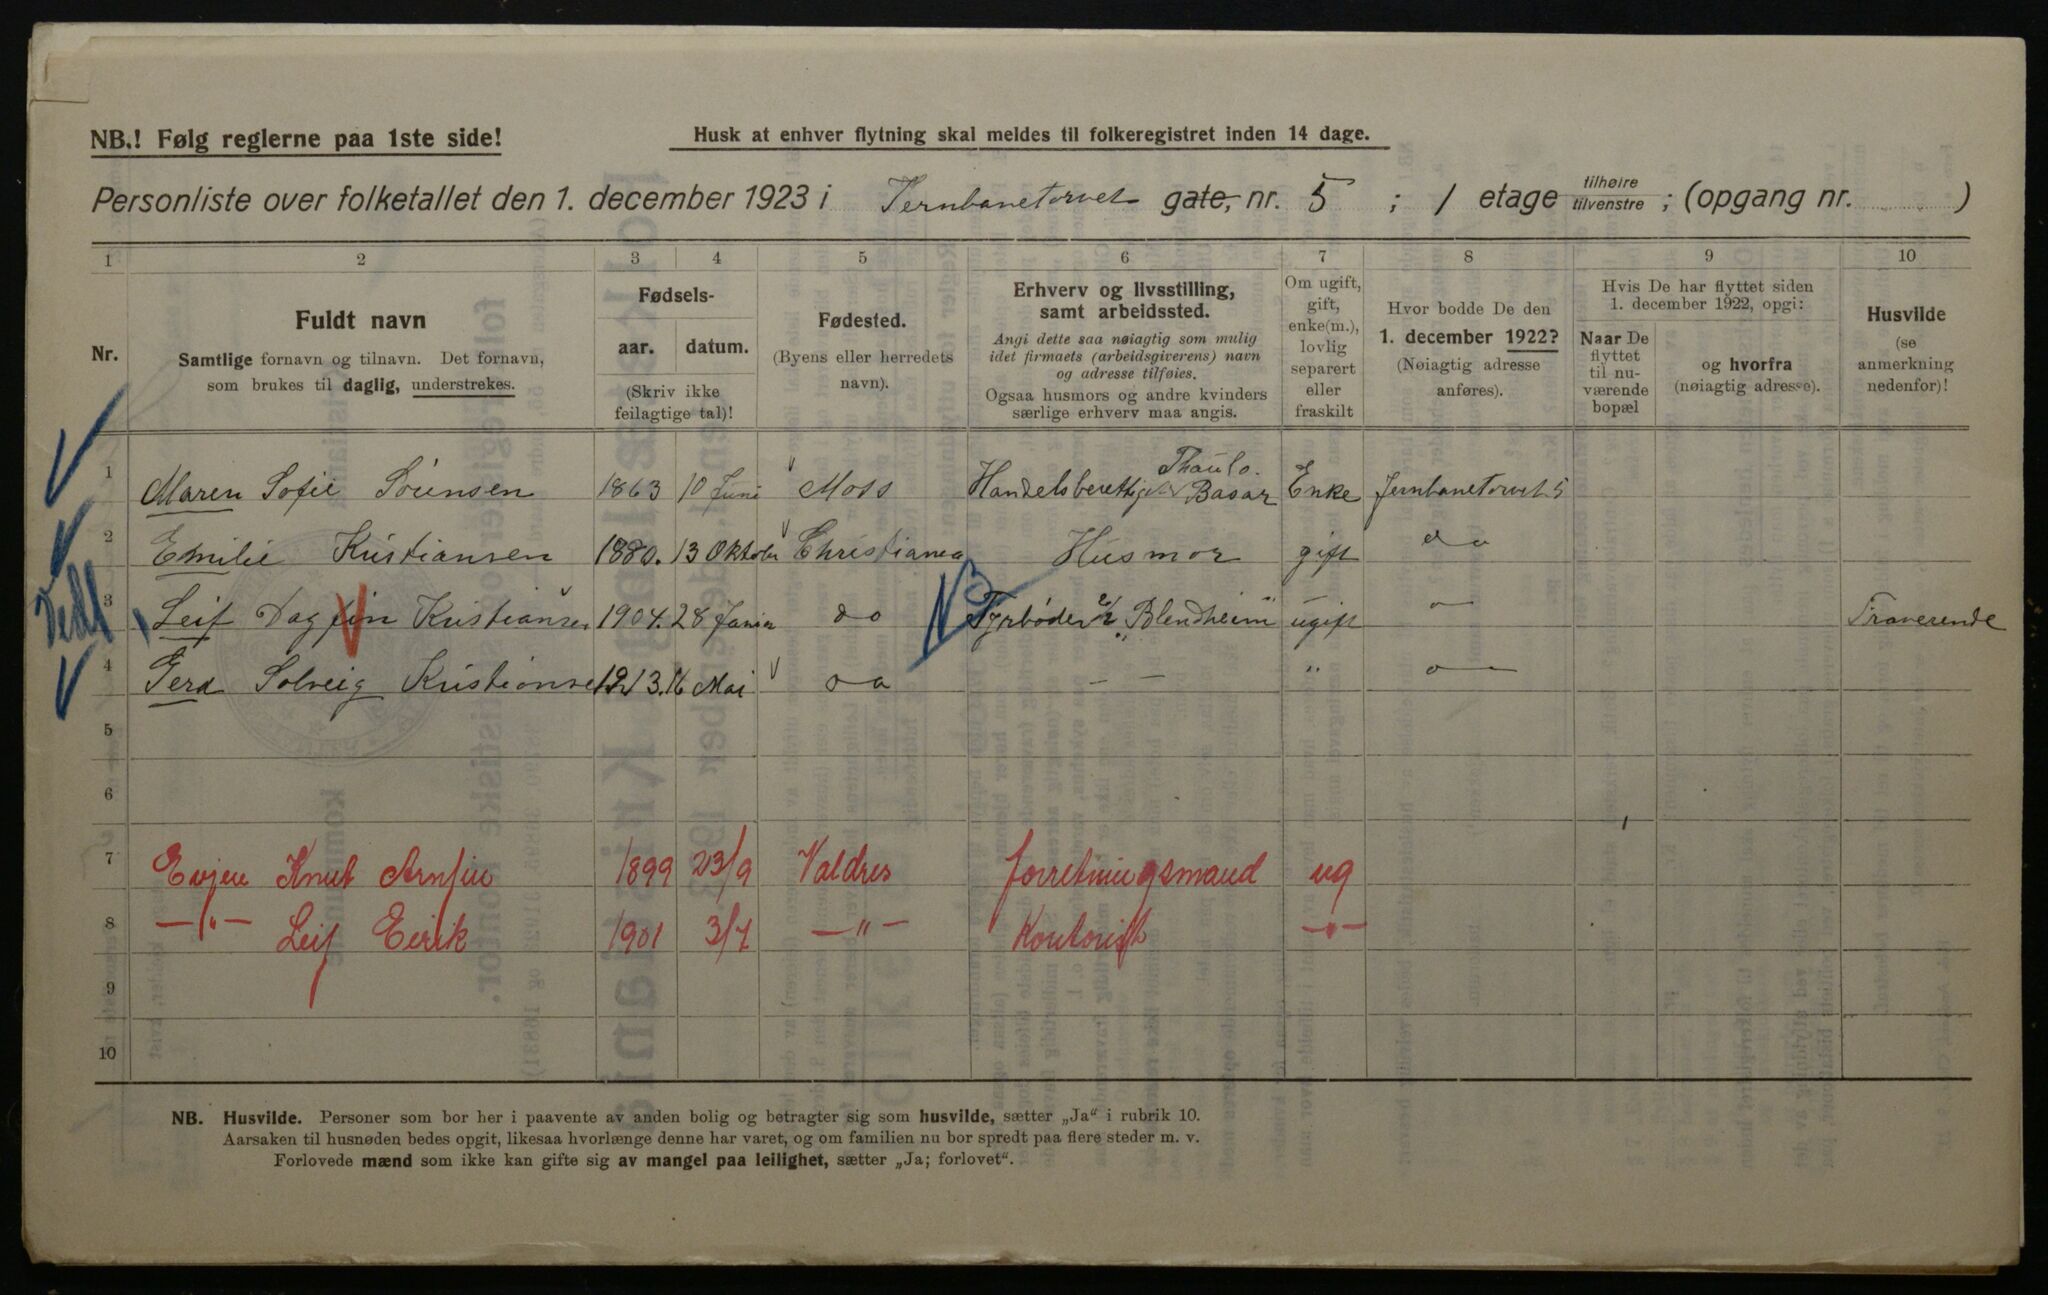 NB.! Følg reglerne paa 1ste side!
Husk at enhver flytning skal meldes til folkeregistret inden 14 dage.
Personliste over folketallet den 1. december 1923 i Jernbanetorvet gate, nr. 5 ; 1 etage tilhøire tilvenstre ; (opgang nr. )
1 2 3 4 5 6 7 8 9 10
Nr.
Fuldt navn
Samtlige fornavn og tilnavn. Det fornavn,
som brukes til daglig, understrekes.
Fødsels-
aar. datum.
(Skriv ikke
feilagtige tal)!
Fødested.
(Byens eller herredets
navn).
Erhverv og livsstilling,
samt arbeidssted.
Angi dette saa nøiagtig som mulig
idet firmaets (arbeidsgiverens) navn
og adresse tilføies.
Ogsaa husmors og andre kvinders
særlige erhverv maa angis.
Om ugift,
gift,
enke(m.),
lovlig
separert
eller
fraskilt
Hvor bodde De den
1. december 1922?
(Nøiagtig adresse
anføres).
Hvis De har flyttet siden
1. december 1922, opgi:
Naar De
flyttet
til nu-
værende
bopæl
og hvorfra
(nøiagtig adresse).
Husvilde
(se
anmerkning
nedenfor)!
1 Maren Sofie Sørensen 1863 10 Juni Moss Handelsberettiget Thaulo. Basar Enke Jernbanetorvet 5
2 Emilie Kristiansen 1880. 13 Oktober Christiania Husmor gift do
3 Leif Dagfin Kristiansen 1904. 28 Januar do Fyrbøder "Blendheim" ugift — Fraverende
4 Gerd Solveig Kristiansen 1913. 16 Mai do — — " —
5
6
7 Evjen Knut Arnfin 1899 23/9 Valdres Forretningsmand ug
8 —"— Leif Eirik 1901 3/7 —"— Kontorist —"—
9
10
NB. Husvilde. Personer som bor her i paavente av anden bolig og betragter sig som husvilde, sætter „Ja" i rubrik 10.
Aarsaken til husnøden bedes opgit, likesaa hvorlænge denne har varet, og om familien nu bor spredt paa flere steder m. v.
Forlovede mænd som ikke kan gifte sig av mangel paa leilighet, sætter „Ja; forlovet".